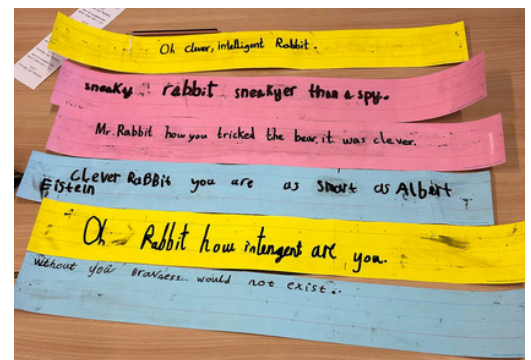 Oh clever, intelligent Rabbit.
sneaky rabbit sneakyer than a spy.
Mr. Rabbit how you tricked the bear, it was clever.
Clever RaBBit you are as smart as Albert
Eistein
Oh Rabbit how intengent are you.
without you bravness would not exist.